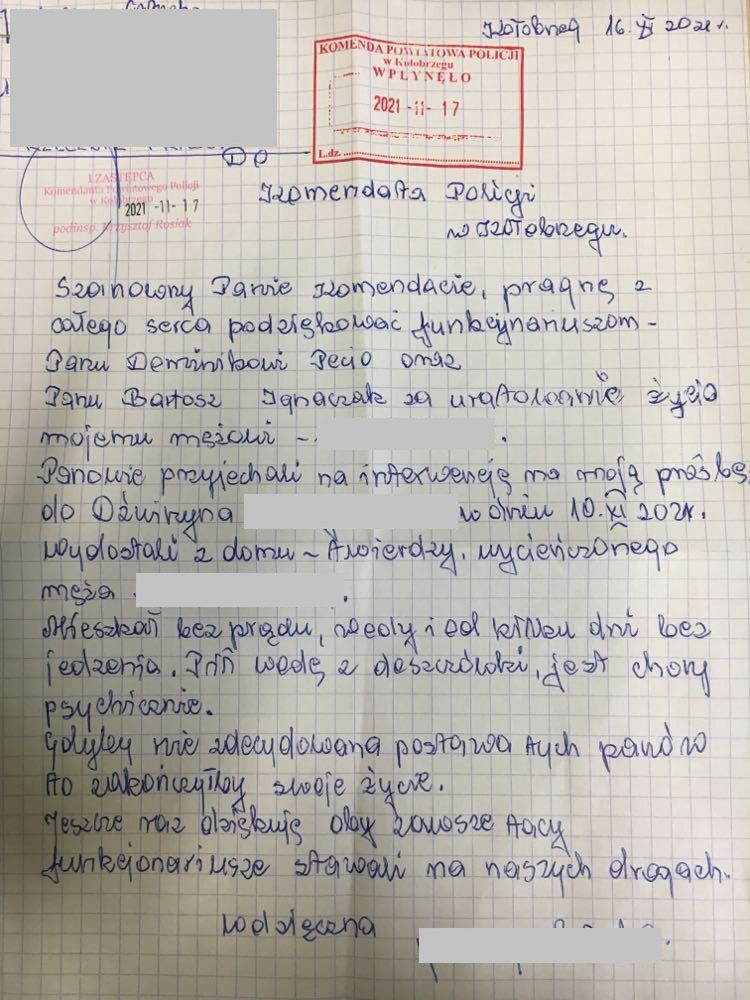 Kołobrzeg 16.XI 2021r.
KOMENDA POWIATOWA POLICJI
w Kołobrzegu
WPŁYNĘŁO
2021 -11- 17
L.dz.
DO
I ZASTĘPCA
Komendanta Powiatowego Policji
w Kołobrzegu
2021 -11- 17
podinsp. Krzysztof Rosiak
Komendata Policji
w Kołobrzegu.
Szanowny Panie Komendacie, pragnę z
całego serca podziękować funkcjynariuszom -
Panu Dominikowi Pecio oraz
Panu Bartosz Ignaczak za uratowanie życia
mojemu mężowi - .
Panowie przyjechali na interwencję na moją prośbę
do Dźwirzyna w dniu 10.XI 2021r.
wydostali z domu - twierdzy, wycieńczonego
męża .
Mieszkał bez prądu, wody i od kilku dni bez
jedzenia. Pił wodę z deszczówki, jest chory
psychicznie.
Gdyby nie zdecydowana postawa tych panów
to zakończyłby swoje życie.
Jeszcze raz dziękuję oby zawsze tacy
funkcjonariusze stawali na naszych drogach.
wdzięczna